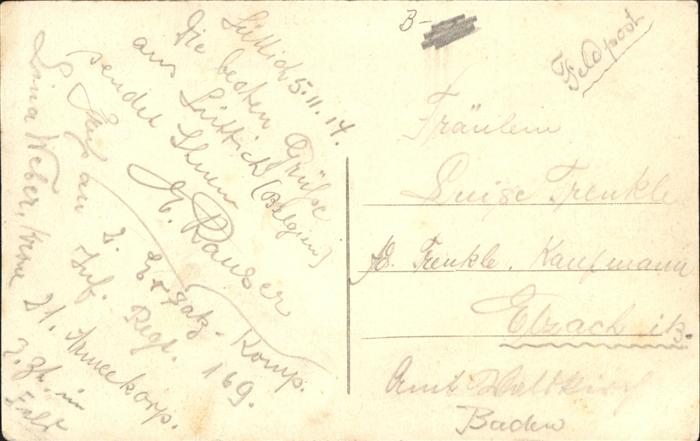 Lüttich 5.11.14.
Die besten Grüße
aus Lüttich (Belgien)
sendet Ihnen
A. Rauser
2. Ersatz. Komp.
Inf. Regt. 169.
21. Armeekorp.
z. Zt. im
Feld
Gruß an
Lina Weber,
B-
Feldpost
Fräulein
Luise Trenkle
Trenkle, Kaufmann
Elzach i/B.
Amt Waldkirch
Baden